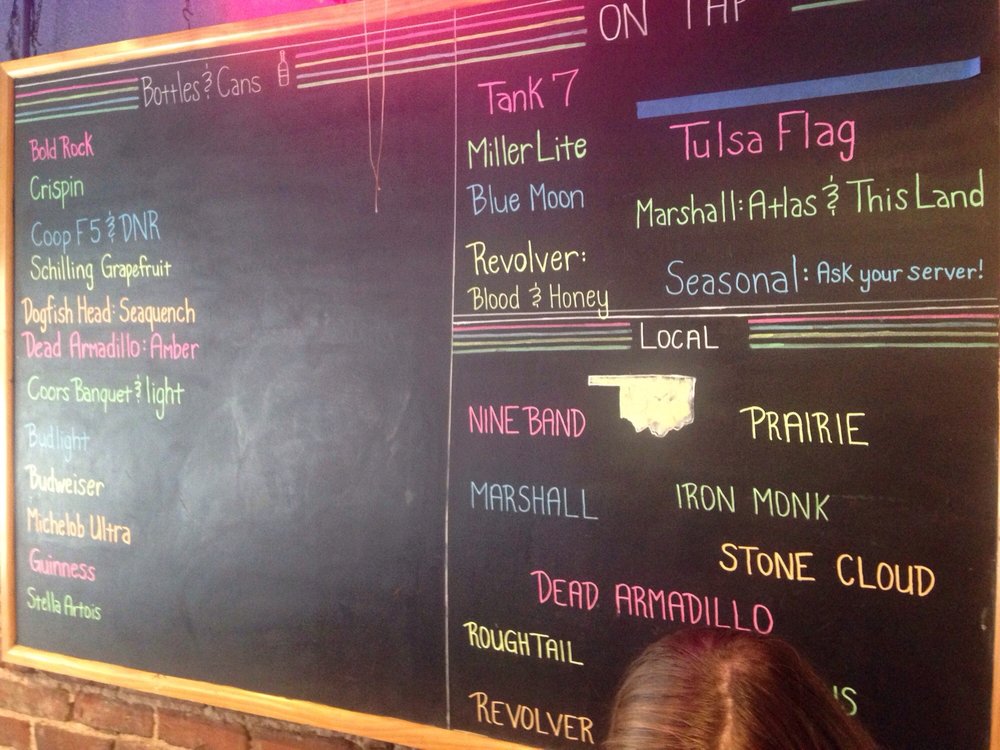 Bottles & Cans
Bold Rock
Crispin
Coop F5 & DNR
Schilling Grapefruit
Dogfish Head: Seaquench
Dead Armadillo: Amber
Coors Banquet & light
Bud light
Budweiser
Michelob Ultra
Guinness
Stella Artois
ON TAP
Tank 7
Miller Lite
Blue Moon
Revolver:
Blood & Honey
Tulsa Flag
Marshall: Atlas & This Land
Seasonal: Ask your server!
LOCAL
NINE BAND
PRAIRIE
MARSHALL
IRON MONK
STONE CLOUD
DEAD ARMADILLO
ROUGHTAIL
REVOLVER